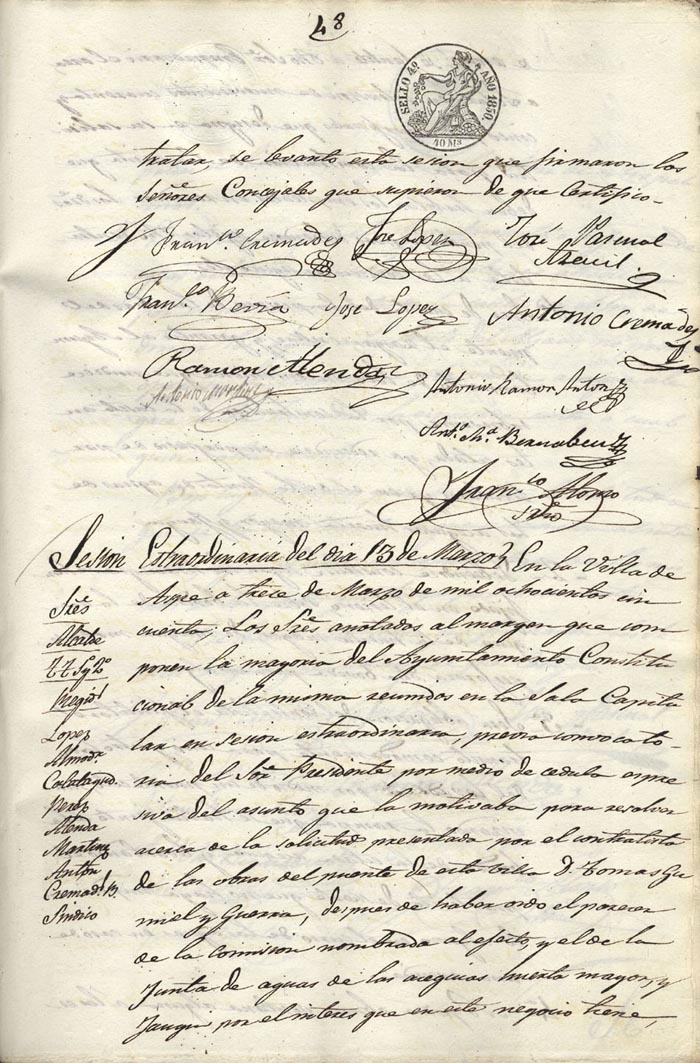 48
SELLO 4º AÑO 1850
40 Ms
tratar, se levanto esta sesion que firmaron los
Señores Concejales que supieron de que Certifico-
Franco Cremades Jose Lopez José Pascual
Franco Jose Lopez Antonio Cremades
Ramon Alenda
Antonio Martinez Antonio Ramon Anton
Anto Ma Bernabeu
Franco Alonso
Srio
Sesion Estraordinaria del dia 13 de Marzo En la Villa de
Aspe a trece de Marzo de mil ochocientos cin
cuenta; Los Sres anotados al margen que com
ponen la mayoria del Ayuntamiento Constitu
cional de la misma reunidos en la Sala Capitu
lar en sesion estraordinaria, previa convocato-
ria del Sor Presidente por medio de cedula espre
siva del asunto que la motivaba para resolver
acerca de la solicitud presentada por el contratista
de las obras del puente de esta villa D. Tomas Gu
miel y Guerra, despues de haber oido el parecer
de la Comision nombrada al efecto, y el de la
Junta de aguas de las acequias huerta mayor, y
Fauqui por el interes que en este negocio tiene,
Sres
Alcalde
Regid
Lopez
Almodr
Calatayud
Perez
Alenda
Martinez
Anton
Cremads B.
Sindico